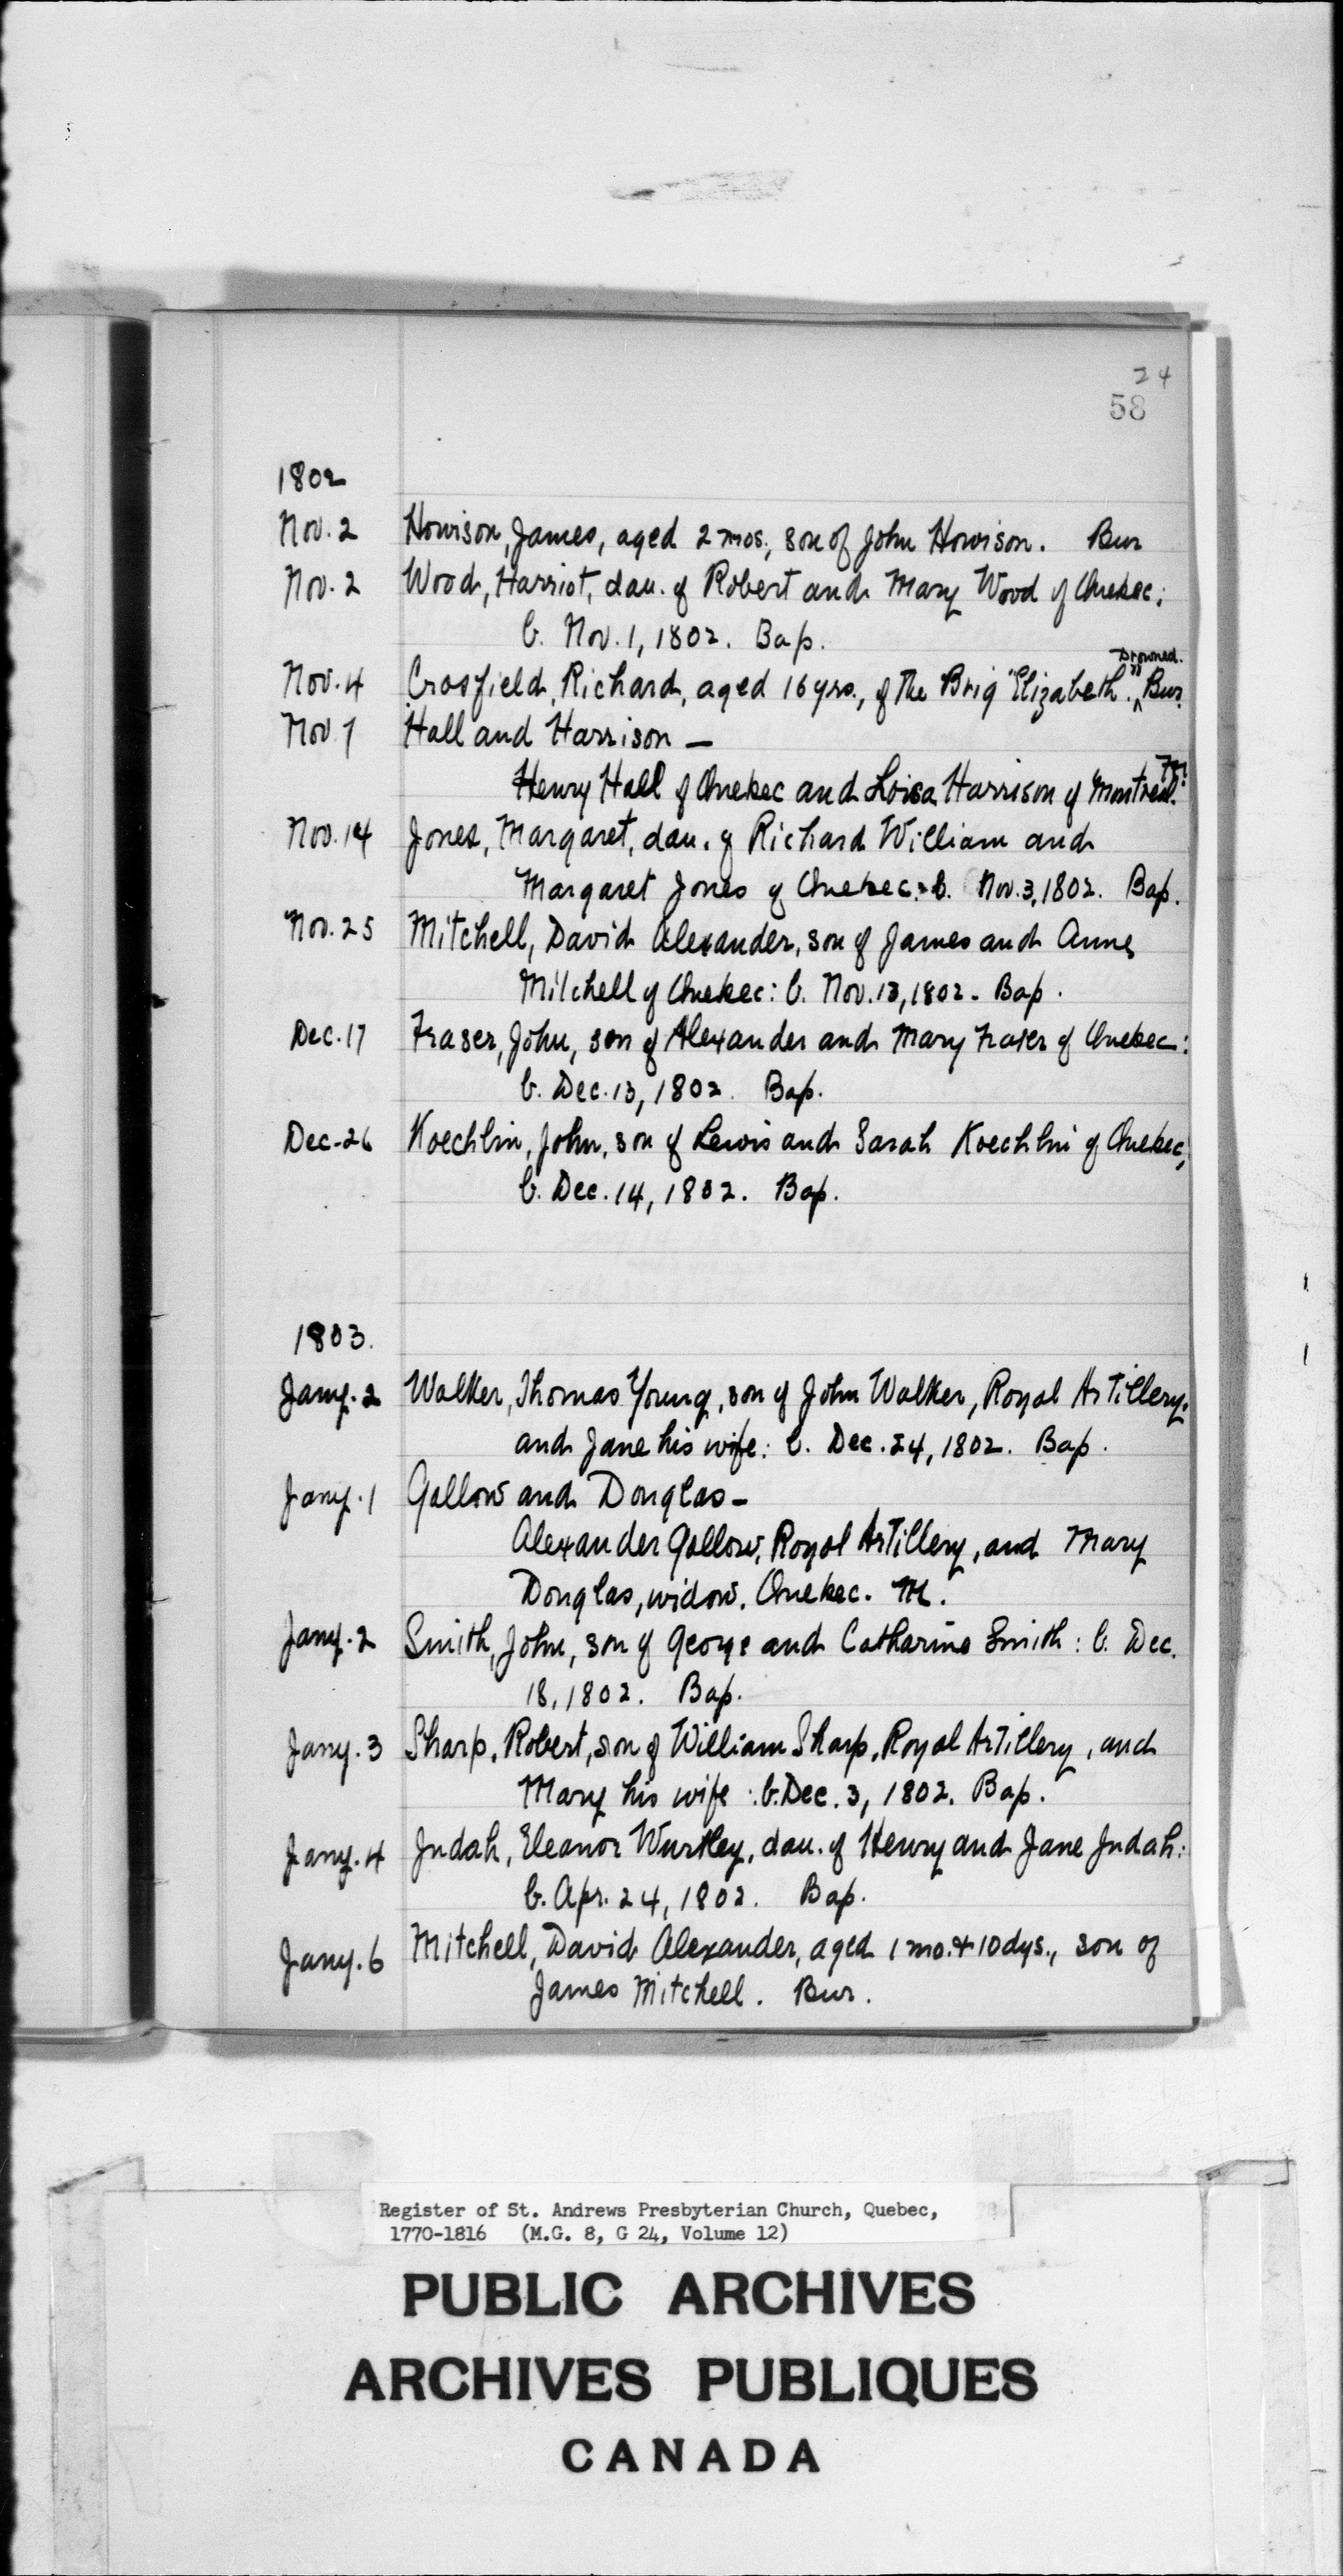 24
58
1802
Nov. 2 Howison, James, aged 2 mos., son of John Howison. Bur
Nov. 2 Wood, Harriot, dau. of Robert and Mary Wood of Quebec;
b. Nov. 1, 1802. Bap.
Drowned.
Nov. 4 Crosfield, Richard, aged 16 yrs., of the Brig "Elizabeth." ^ Bur.
Nov. 7 Hall and Harrison —
Henry Hall of Quebec and Loisa Harrison of Montreal. M.
Nov. 14 Jones, Margaret, dau. of Richard William and
Margaret Jones of Quebec: b. Nov. 3, 1802. Bap.
Nov. 25 Mitchell, David Alexander, son of James and Anne
Mitchell of Quebec: b. Nov. 13, 1802. Bap.
Dec. 17 Fraser, John, son of Alexander and Mary Fraser of Quebec:
b. Dec. 13, 1802. Bap.
Dec. 26 Koechlin, John, son of Lewis and Sarah Koechlin of Quebec;
b. Dec. 14, 1802. Bap.
1803.
Jany. 2 Walker, Thomas Young, son of John Walker, Royal Artillery,
and Jane his wife: b. Dec. 24, 1802. Bap.
Jany. 1 Gallow and Douglas —
Alexander Gallow, Royal Artillery, and Mary
Douglas, widow, Quebec. M.
Jany. 2 Smith, John, son of George and Catharine Smith: b. Dec.
18, 1802. Bap.
Jany. 3 Sharp, Robert, son of William Sharp, Royal Artillery, and
Mary his wife: b. Dec. 3, 1802. Bap.
Jany. 4 Judah, Eleanor Wurtley, dau. of Henry and Jane Judah:
b. Apr. 24, 1802. Bap.
Jany. 6 Mitchell, David Alexander, aged 1 mo. + 10 dys., son of
James Mitchell. Bur.
Register of St. Andrews Presbyterian Church, Quebec,
1770-1816 (M.G. 8, G 24, Volume 12)
PUBLIC ARCHIVES
ARCHIVES PUBLIQUES
CANADA